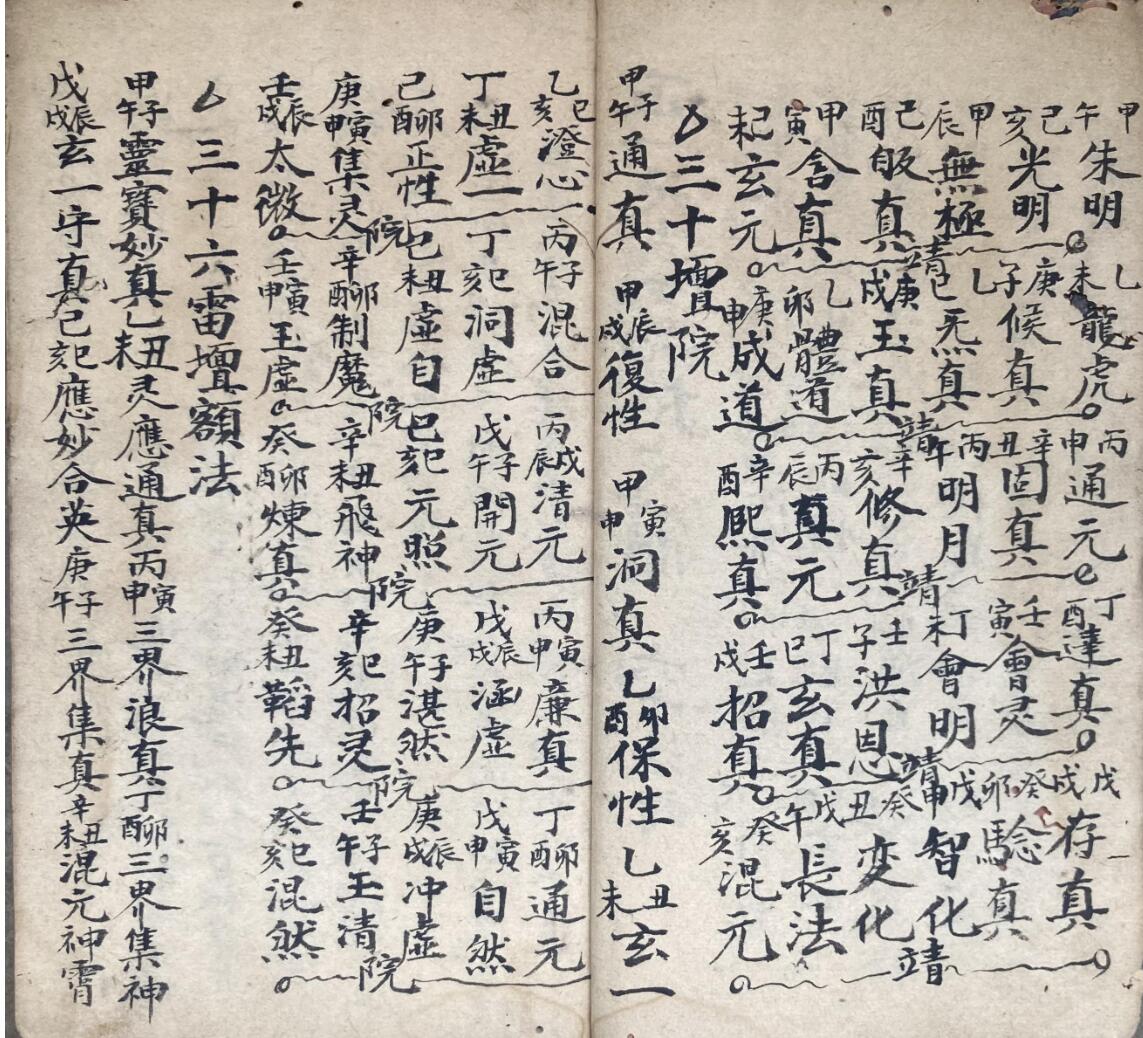 甲午朱明 乙未龍虎 丙申通元 丁酉達真 戊戌存真
己亥光明 庚子候真 辛丑固真 壬寅會灵 癸卯驗真
甲辰無極靖 乙巳炁真靖 丙午明月靖 丁未會明靖 戊申智化靖
己酉皈真 庚戌玉真 辛亥修真 壬子洪恩 癸丑变化
甲寅含真 乙卯體道 丙辰真元 丁巳玄真 戊午長法
己未玄元 庚申成道 辛酉熙真 壬戌招真 癸亥混元
三十壇院
甲子午通真 甲辰戌復性 甲寅申洞真 乙卯酉保性 乙丑未玄一
乙巳亥澄心 丙子午混合 丙戌辰清元 丙寅申廉真 丁卯酉通元
丁丑未虛一 丁巳亥洞虛 戊子午開元 戊辰戌涵虛 戊寅申自然
己卯酉正性 己丑未虛自 己巳亥元照 庚子午湛然 庚辰戌冲虛
庚寅申集灵院 辛卯酉制魔院 辛丑未飛神院 辛巳亥招灵院 壬子午玉清院
壬辰戌太微 壬寅申玉虛 癸卯酉煉真 癸丑未韜先 癸巳亥混然
三十六雷壇額法
甲子午靈寶妙真乙丑未灵應通真丙寅申三界浪真丁卯酉三界集神
戊辰戌玄一守真己巳亥應妙合英庚子午三界集真辛丑未混元神霄